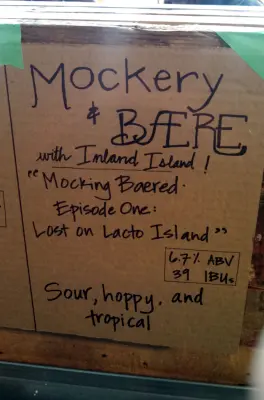 Mockery
& BÆRE
with Inland Island!
"Mocking Baered.
Episode One:
Lost on Lacto Island"
6.7% ABV
39 IBUs
Sour, hoppy, and
tropical